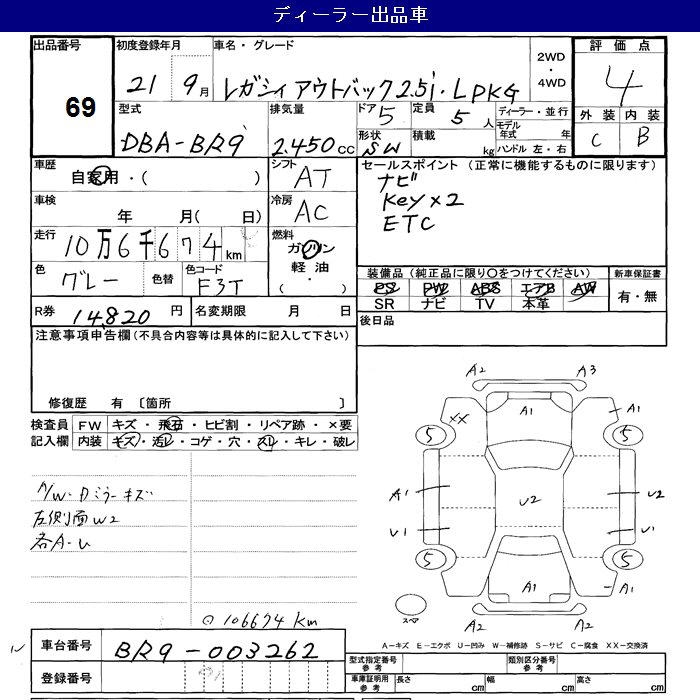 ディーラー出品車
出品番号
69
初度登録年月
21 9月
車名・グレード
レガシィアウトバック2.5i・LPKG
2WD
・
4WD
評価点
4
外装 内装
C B
型式
DBA-BR9
排気量
2.450cc
ドア 5
形状
SW
定員
5人
積載
kg
ディーラー・並行
モデル
年式 年
ハンドル 左・右
車歴
自家用・( )
シフト
AT
車検
年 月( 日)
冷房
AC
走行
10万6千674km
燃料
ガソリン
軽油
( ・ )
色
グレー
色替
色コード
F3T
R券 14.820 円
名変期限 月 日
セールスポイント (正常に機能するものに限ります)
ナビ
Key×2
ETC
装備品(純正品に限り○をつけてください)
PS PW ABS エアB AW
SR ナビ TV 本革
新車保証書
有・無
後日品
注意事項申告欄(不具合内容等は具体的に記入して下さい)
修復歴 有 〔箇所 〕
検査員
記入欄
FW キズ・飛石・ヒビ割・リペア跡・×要
内装 キズ・汚レ・コゲ・穴・スレ・キレ・破レ
A/W・Dミラーキズ
左側面W2
各A-U
⊙106674km
A2 A3
XX A1 A1
5 5
A1 U2 U2
U1 U1
5 5
A1 A1
スペア A2 A2
A-キズ E-エクボ U-凹み W-補修跡 S-サビ C-腐食 XX-交換済
車台番号 BR9-003262
登録番号
型式指定番号
参考
類別区分番号
参考
車庫証明用
参考
長さ cm 幅 cm 高さ cm